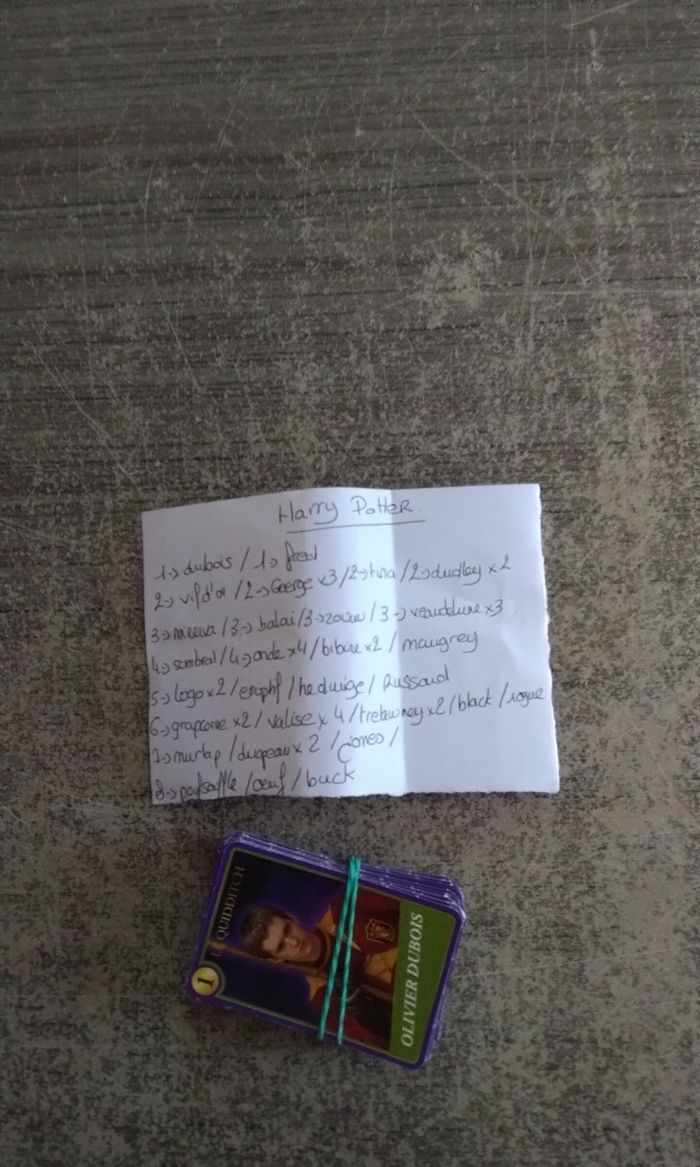 Harry Potter
1→ dubois / 1→ fred
2→ vif d'or / 2→ George x3 / 2→ tina / 2→ dudley x2
3→ / 3→ balai / 3→ / 3→ x3
4→ sombral / 4→ onde x4 / bibine x2 / maugrey
5→ logo x2 / / hedwige / Russard
6→ x2 / valise x 4 / trelawney x2 / black / rogue
7→ murlap / x 2 / jones /
8→ / oeuf / buck
1
LE QUIDDITCH
OLIVIER DUBOIS